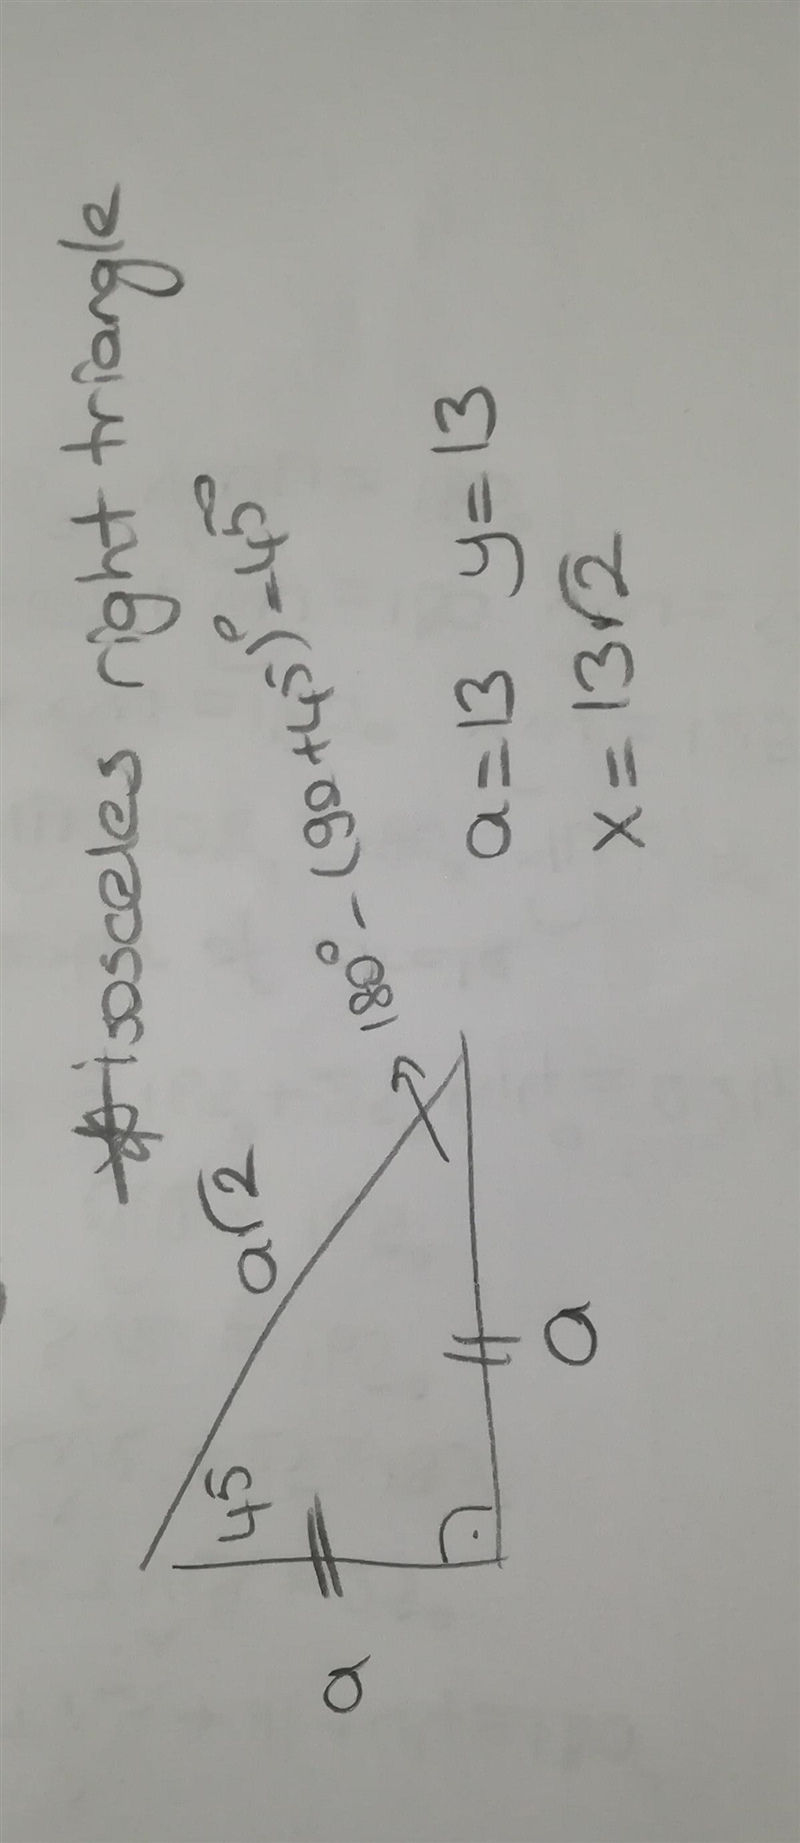 * isosceles right triangle
180° - (90 + 45)° = 45°
a√2
45
a
a
a = 13 y = 13
x = 13√2